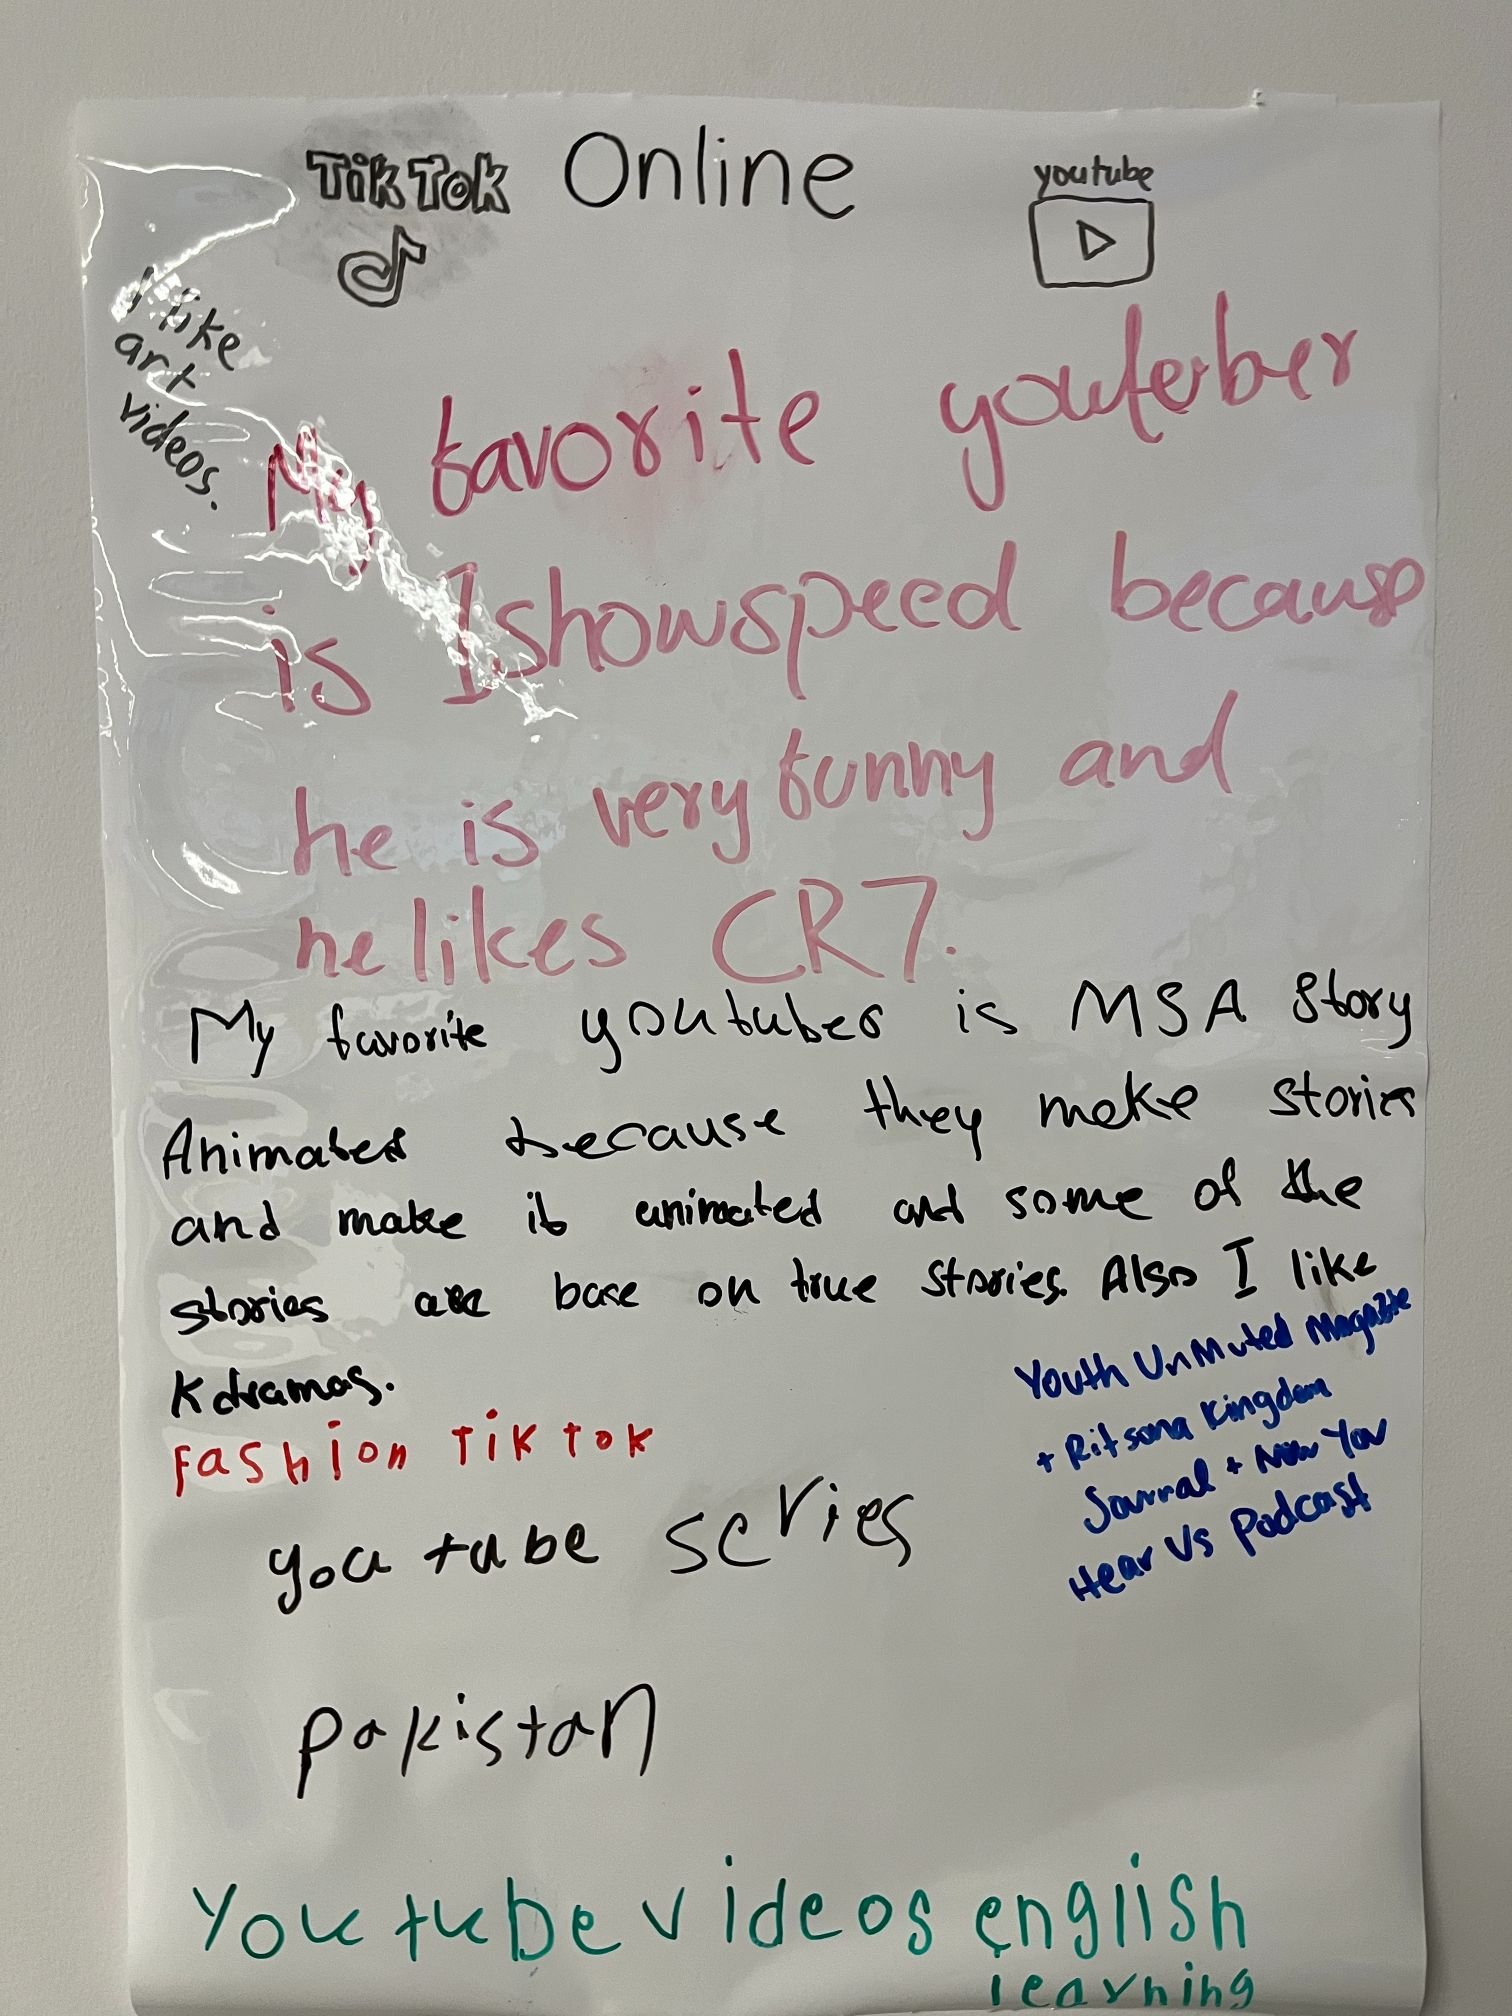 TikTok Online
youtube
I like
art
videos.
My favorite youterber
is Ishowspeed because
he is very funny and
he likes CR7.
My favorite youtuber is MSA Story
Animated because they make stories
and make it animated and some of the
stories are base on true stories. Also I like
Kdramas.
Youth UnMuted Magazine
+ Ritsona Kingdom
Journal + Now You
Hear Us Podcast
Fashion TikTok
youtube series
pakistan
Youtube videos english
learning